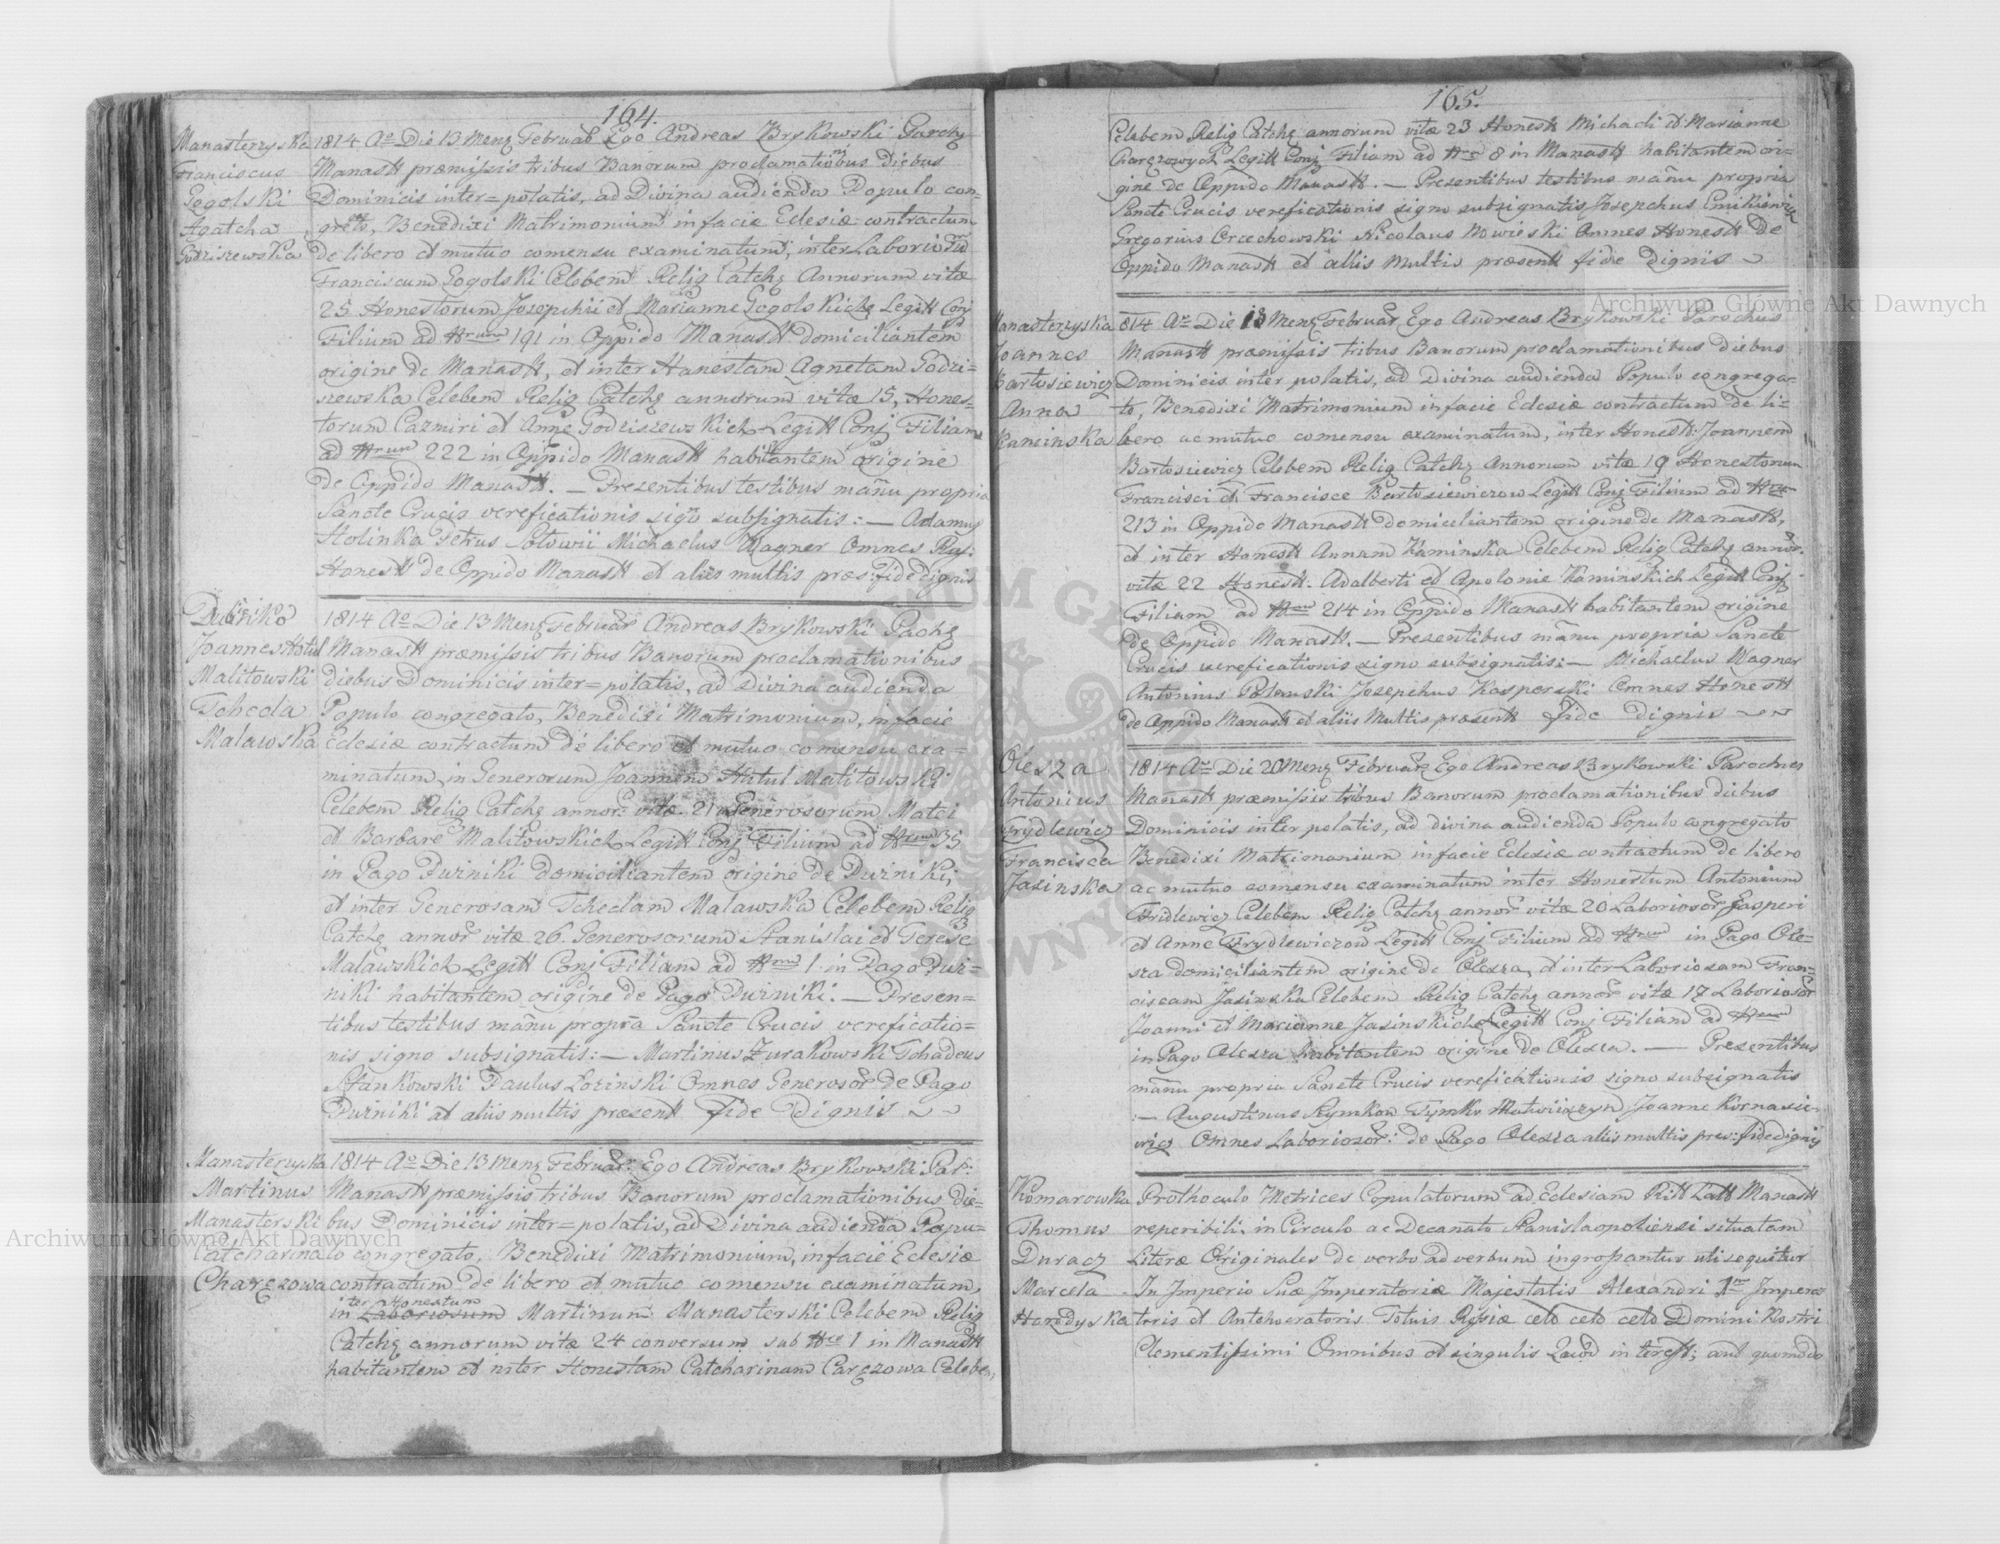 164.
Manasterzyska 1814 Ao Die 13 Menz Februar Ego Andreas Brykowski Parchz
Franciscus Manast præmissis tribus Banorum proclamationibus diebus
Gogolski Dominicis inter=polatis, ad Divina audienda Populo con-
Agatcha greto, Benedixi Matrimonium in facie Eclesiæ contractum
Godziszewska de libero et mutuo comensu examinatum, inter Laboriosum
Franciscum Gogolski Celebem Relig Catchz Annorum vitæ
25 Honestorum Josepchii et Marianne Gogolskichz Legitt Conj
Filium ad Nrum 191 in Oppido Manast domiciliantem
origine de Manast, et inter Honestam Agnetam Godzi-
szewska Celebem Relig Catchz annorum vitæ 15, Hones-
torum Cazmiri et Anne Godziszewskich Legitt Conj Filiam
ad Nrum 222 in Oppido Manast habitantem origine
de Oppido Manast. — Prezentibus testibus mañu propria
Sancte Crucis vereficationis signo subsignatis: — Adamus
Holinka Petrus Sotowii Michaelus Wagner Omnes
Honest de Oppido Manast et aliis multis præs: fide dignis
Dubinko 1814 Ao Die 13 Menz Februar Andreas Brykowski Pachz
Joannes Hutul Manast præmissis tribus Banorum proclamationibus
Malitowski diebus Dominicis inter=polatis, ad Divina audienda
Tcheda Populo congregato, Benedixi Matrimonium, in facie
Malawska Eclesiæ contractum de libero et mutuo comensu exa=
minatum, in Generorum Joannem Hutul Malitowski
Celebem Relig Catchz annor vitæ 21 Generosorum Matei
et Barbare Malitowskich Legitt Conj Filium ad Nrum 35
in Pago Duiniki domiciliantem origine de Duiniki;
et inter Generosam Tcheclam Malawska Celebem Relig
Catchz annor vitæ 26. Generosorum Stanislai et Terese
Malawskich Legitt Conj Filiam ad Nrum 1 in Pago Dui=
niki habitantem origine de Pago Duiniki. — Presen=
tibus testibus mañu propria Sancte Crucis vereficatio=
nis signo subsignatis: — Martinus Zurakowski Tchadeus
Stankowski Paulus Lozinski Omnes Generosor de Pago
Duiniki at aliis multis præsent fide Dignis
Manasterzyska 1814 Ao Die 13 Menz Februar: Ego Andreas Brykowski Par:
Martinus Manast præmissis tribus Banorum proclamationibus die=
Manasterski bus Dominicis inter=polatis, ad Divina audienda Popu=
Catcharina lo congregato, Benedixi Matrimonium, in facie Eclesiæ
Charęzowa contractum de libero et mutuo comensu examinatum,
ter Honestum
in Laboriosum Martinum Manasterski Celebem Relig
Catchz annorum vitæ 24 conversum sub Nro 1 in Manast
habitantem et inter Honestam Catcharinam Caręzowa Celebem,
165.
Celebem Relig Catchz annorum vitæ 23 Honest Michaeli et Marianne
Charęzowych Legitt Conj Filiam ad Nrum 8 in Manast habitantem ori-
gine de Oppido Manast. — Presentibus testibus mañu propria
Sancte Crucis vereficationis signo subsignatis Josepchus
Gregorius Orzechowski Nicolaus Nowieski Omnes Honest De
Oppido Manast et aliis multis præsent fide Dignis
Manasterzyska 1814 Ao Die 13 Menz Februar Ego Andreas Brykowski Parochus
Joannes Manast præmissis tribus Banorum proclamationibus diebus
Bartosiewicz Dominicis inter polatis, ad Divina audienda Populo congrega-
Anna to, Benedixi Matrimonium in facie Eclesiæ contractum de li-
Kamińska bero ac mutuo comensu examinatum, inter Honest: Joannem
Bartosiewicz Celebem Relig Catchz Annorum vitæ 19 Honestorum
Francisci et Francisce Bartosiewiczow Legitt Conj Filium ad Nrum
213 in Oppido Manast domiciliantem origine de Manast,
et inter Honest Annam Kaminska Celebem Relig Catchz annor:
vitæ 22 Honest: Adalberti et Apolonie Kaminskich Legitt Conj
Filiam ad Nrum 214 in Oppido Manast habitantem origine
de Oppido Manast. — Presentibus mañu propria Sancte
Crucis vereficationis signo subsignatis: — Michaelus Wagner
Antonius Polauski Josepchus Kasperski Omnes Honest
de Oppido Manast et aliis Multis præsent fide dignis
Olesza 1814 Ao Die 20 Menz Februar Ego Andreas Brykowski Parochus
Antonius Manast præmissis tribus Banorum proclamationibus diebus
Frydlewicz Dominicis inter polatis, ad divina audienda Populo congregato
Francisca Benedixi Matrimonium in facie Eclesiæ contractum de libero
Jasinska ac mutuo comensu examinatum inter Honestum Antonium
Fridlewicz Celebem Relig Catchz annor vitæ 20 Laboriosor Gasperi
et Anne Frydlewiczow Legitt Conj Filium ad Nrum in Pago Ole-
sza domiciliantem origine de Olesza, et inter Laboriosam Fran-
ciscam Jasinska Celebem Relig Catchz annor vitæ 17 Laboriosor
Joanni et Marianne Jasinskich Legitt Conj Filiam ad Nrum
in Pago Olesza habitantem origine de Olesza. — Prezentibus
mañu propria Sancte Crucis vereficationis signo subsignatis
:— Augustinus Szymkow Tymko Matwiiszyn Joanne Kornasie-
wicz Omnes Laboriosor: de Pago Olesza aliis multis pres: fide dignis
Komarowka Prothoculo Metrices Copulatorum ad Eclesiam Ritt Latt Manast
Thomus reperibili in Circulo ac Decanato Stanislaopoliensi situatam
Duracz Literæ Originales de verbo ad verbum ingrossantur uti sequitur
Marcela In Imperio Suæ Imperatoriæ Majestatis Alexandri 1mi Impera
Horodyska toris et Autchocratoris Totuis Rossiæ celd celd celd Domini Nostri
Clementissimi Omnibus et singulis Quod interest; aut quomodo
Archiwum Główne Akt Dawnych
Archiwum Główne Akt Dawnych